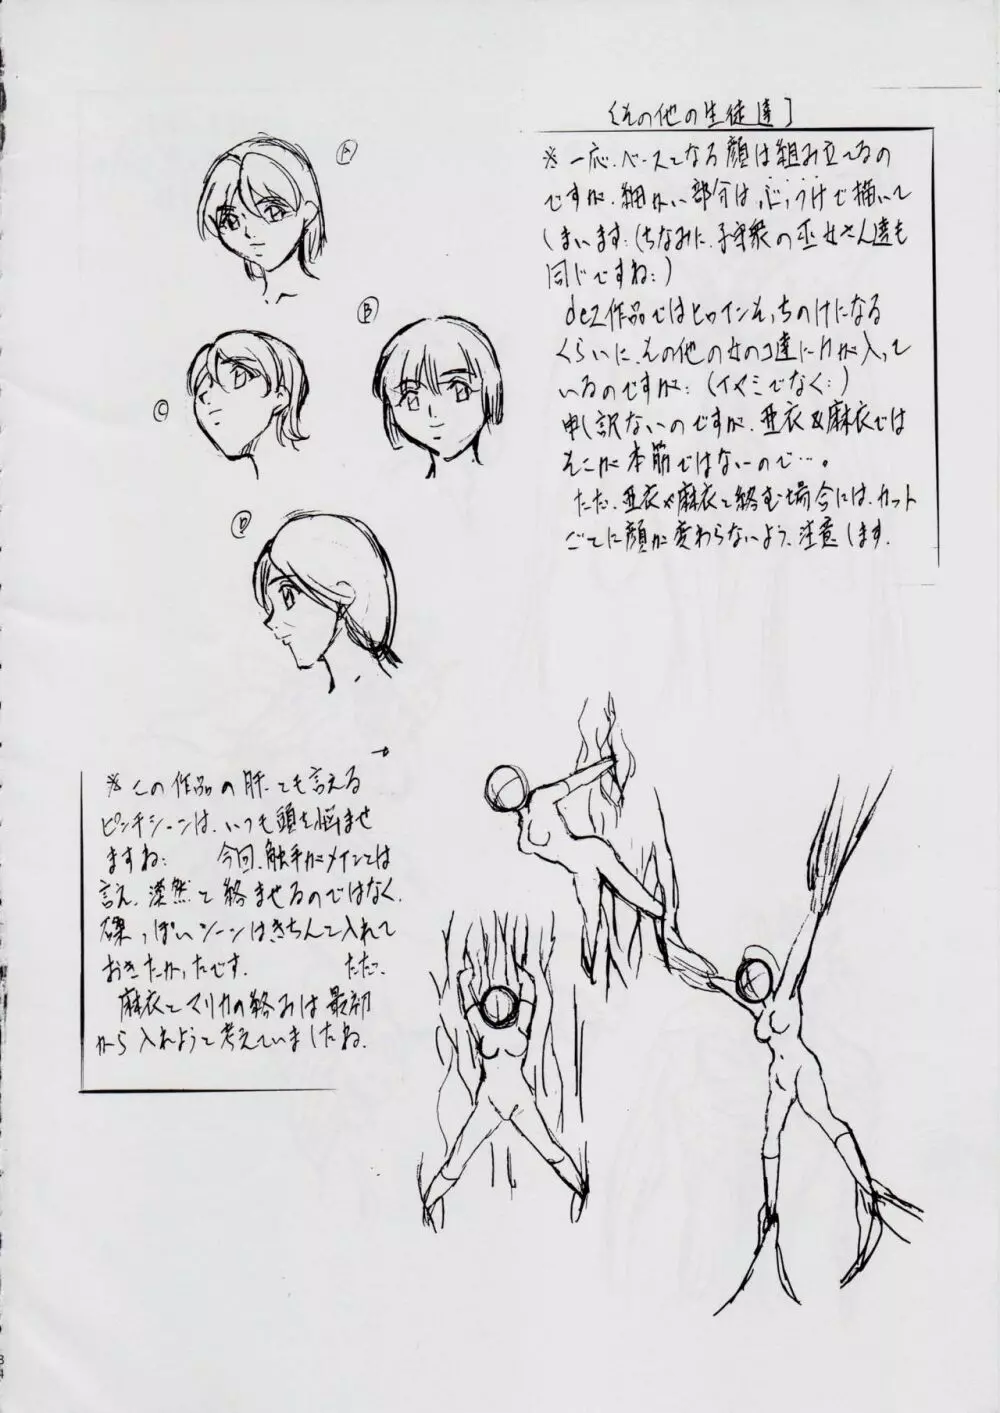 [その他の生徒達]
※ 一応、ベースとなる顔は組み立てるの
ですが、細かい部分は、ぶっつけで描いて
しまいます:(ちなみに、子守衆の巫女さん達も
同じですね:)
dez作品ではヒロインそっちのけになる
くらいに、その他の女のコ達に力が入って
いるのですが:(イヤミでなく:)
申し訳ないのですが、亜衣&麻衣では
そこが本筋ではないので…。
ただ、亜衣や麻衣と絡む場合には、カット
ごとに顔が変わらないよう、注意します。
A
B
C
D
※ この作品の肝とも言える
ピンチシーンは、いつも頭を悩ませ
ますね: 今回、触手がメインとは
言え、漠然と絡ませるのではなく、
磔っぽいシーンはきちんと入れて
おきたかったです。 ただ、
麻衣とマリカの絡みは最初
から入れようと考えていましたね。
34